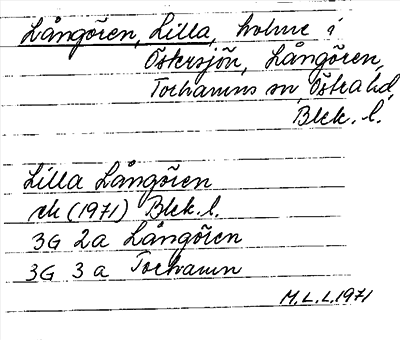 Långören, Lilla, holme i
Östersjön, Långören,
Torhamns sn, Östra hd,
Blek. l.
Lilla Långören
ek (1971) Blek. l.
3G 2a Långören
3G 3a Torhamn
M. L. L. 1971